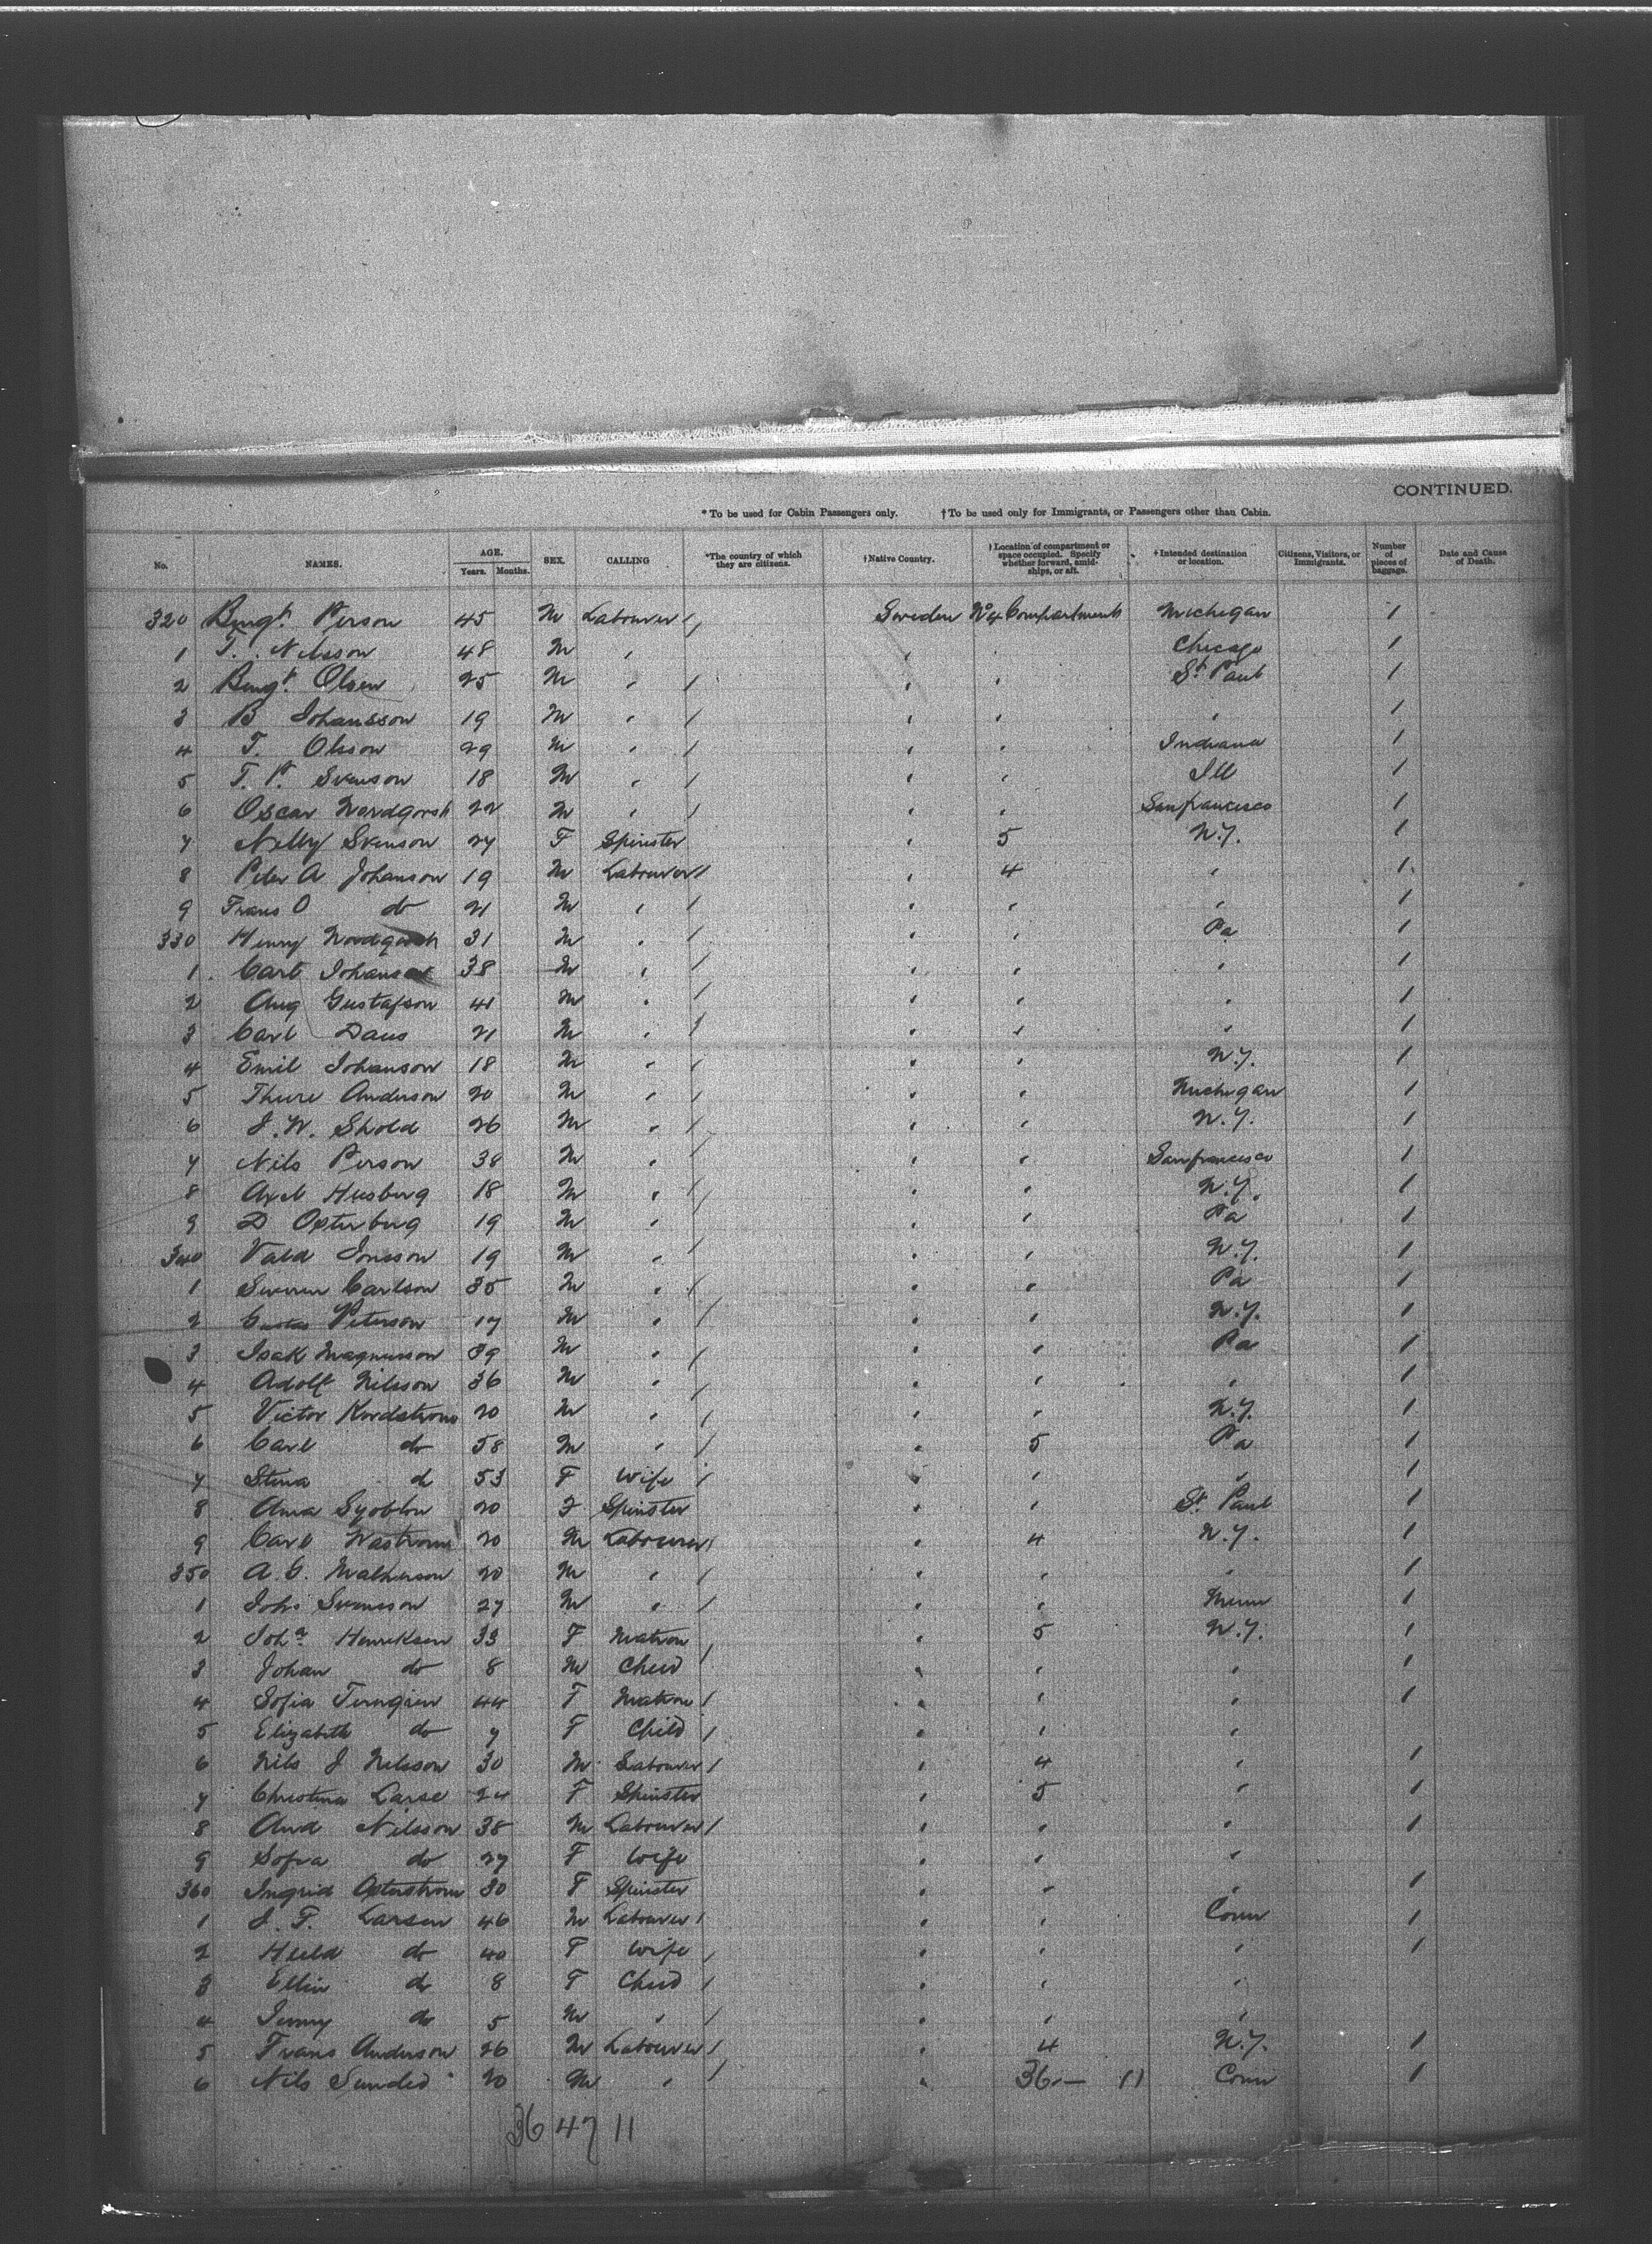 CONTINUED.
* To be used for Cabin Passengers only. † To be used only for Immigrants, or Passengers other than Cabin.
No. NAMES. AGE. Years. Months. SEX. CALLING *The country of which they are citizens. †Native Country. †Location of compartment or space occupied. Specify whether forward, amid-ships, or aft. †Intended destination or location. Citizens, Visitors, or Immigrants. Number of pieces of baggage. Date and Cause of Death.
320 Bengt Person 45 M Labourer / Sweden No 4 Compartment Michigan 1
1 T. Nilsson 48 M " " " Chicago 1
2 Bengt Olsen 25 M " / " " St Paul 1
3 B Johansson 19 M " / " " " 1
4 T. Olsson 29 M " / " " Indiana 1
5 T. P. Svenson 18 M " / " " Ill 1
6 Oscar 22 M " / " " Sanfrancisco 1
7 Nelly Svenson 27 F Spinster " 5 N.Y. 1
8 Peter A Johanson 19 M Labourer / " 4 " 1
9 Frans O do 21 M " / " " " 1
330 Henry 31 M " / " " Pa 1
1 Carl Johanson 38 M " / " " " 1
2 Aug Gustafson 41 M " / " " " 1
3 Carl Daus 21 M " / " " " 1
4 Emil Johanson 18 M " / " " N.Y. 1
5 Thure Anderson 20 M " / " " Michigan 1
6 J. W. Shold 26 M " / " " N.Y. 1
7 Nils Person 38 M " / " " Sanfrancisco 1
8 Axel Husberg 18 M " / " " N.Y. 1
9 D Osterberg 19 M " " " Pa 1
340 Vald Jonsson 19 M " / " " N.Y. 1
1 Carlson 35 M " / " " Pa 1
2 Peterson 17 M " / " " N.Y. 1
3 Isak Magnusson 39 M " / " " Pa 1
4 Adolf Nilsson 36 M " / " " " 1
5 Victor Nordstrom 20 M " / " " N.Y. 1
6 Carl do 58 M " / " 5 Pa 1
7 Stina do 53 F Wife / " " " 1
8 Anna 20 F Spinster " " St Paul 1
9 Carl Wastrom 20 M Labourer / " 4 N.Y. 1
350 A. G. 20 M " / " " " 1
1 Johs Svensson 27 M " / " " Minn 1
2 Joha Henriksen 33 F Matron / " 5 N.Y. 1
3 Johan do 8 M Child / " " " 1
4 Sofia 44 F Matron / " " " 1
5 Elizabeth do 7 F Child / " " "
6 Nils J Nilsson 30 M Labourer / " 4 " 1
7 Christina Larse 24 F Spinster " 5 " 1
8 And Nilsson 38 M Labourer / " " " 1
9 Sofia do 27 F Wife " " "
360 Ingrid 30 F Spinster " " " 1
1 J. F. Larsen 46 M Labourer / " " Conn 1
2 Huld do 40 F Wife / " " " 1
3 Ellin do 8 F Child / " " "
4 Jenny do 5 M " / " " "
5 Frans Anderson 26 M Labourer / " 4 N.Y. 1
6 Nils 20 M " / " 36 — 11 Conn 1
36 47 11